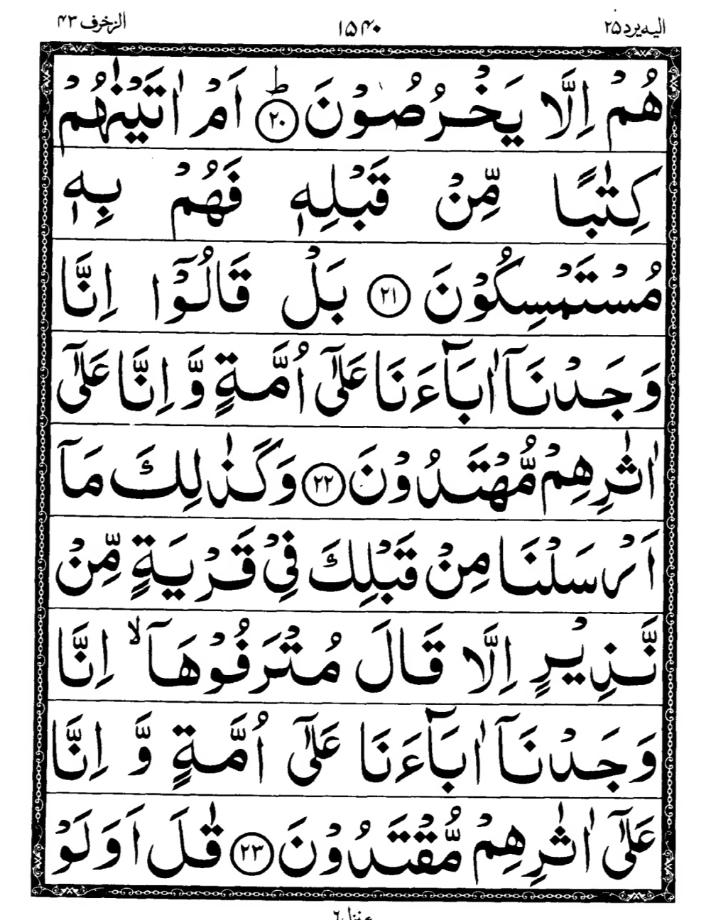 الیہ یرد ۲۵ ۱۵۴۰ الزخرف ۴۳
هُمۡ اِلَّا يَخۡرُصُوۡنَ ؕ ﴿۲۰﴾ اَمۡ اٰتَيۡنٰهُمۡ
كِتٰبًا مِّنۡ قَبۡلِهٖ فَهُمۡ بِهٖ
مُسۡتَمۡسِكُوۡنَ ﴿۲۱﴾ بَلۡ قَالُوۡۤا اِنَّا
وَجَدۡنَاۤ اٰبَآءَنَا عَلٰٓى اُمَّةٍ وَّ اِنَّا عَلٰٓى
اٰثٰرِهِمۡ مُّهۡتَدُوۡنَ ﴿۲۲﴾ وَكَذٰلِكَ مَاۤ
اَرۡسَلۡنَا مِنۡ قَبۡلِكَ فِىۡ قَرۡيَةٍ مِّنۡ
نَّذِيۡرٍ اِلَّا قَالَ مُتۡرَفُوۡهَاۤ ۙ اِنَّا
وَجَدۡنَاۤ اٰبَآءَنَا عَلٰٓى اُمَّةٍ وَّ اِنَّا
عَلٰٓى اٰثٰرِهِمۡ مُّقۡتَدُوۡنَ ﴿۲۳﴾ قٰلَ اَوَلَوۡ
منزل ۶